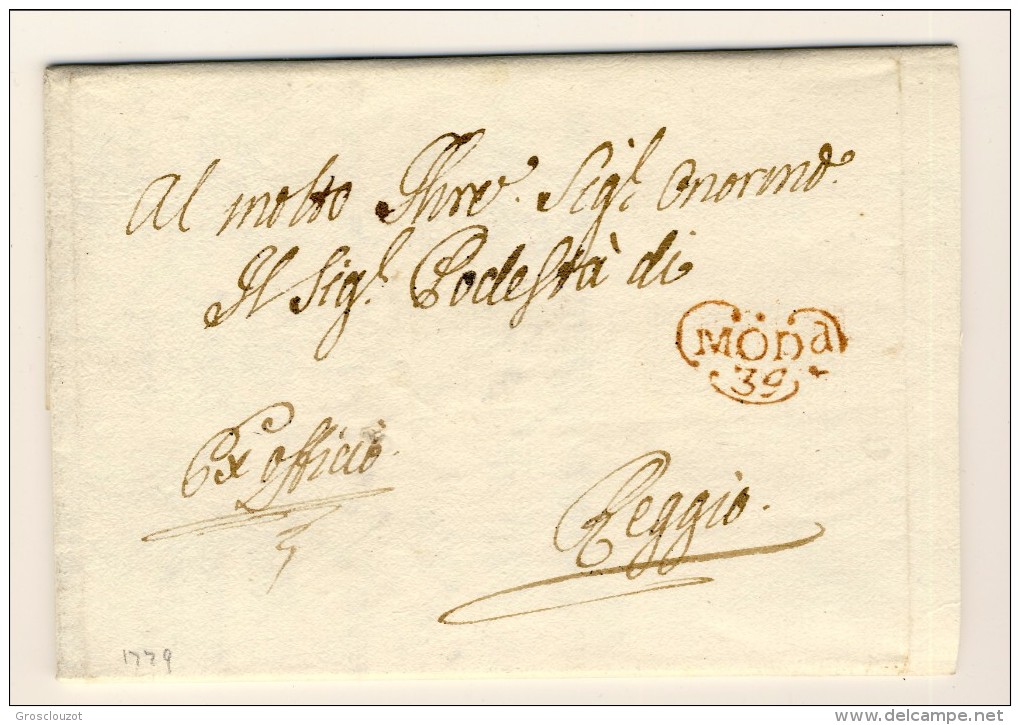 Al molto Illre. Sigr. Onormo.
Il Sigr. Podestà di
MODa
39
Ex officio.
Reggio.
1779
Grosclouzot
delcampe.net